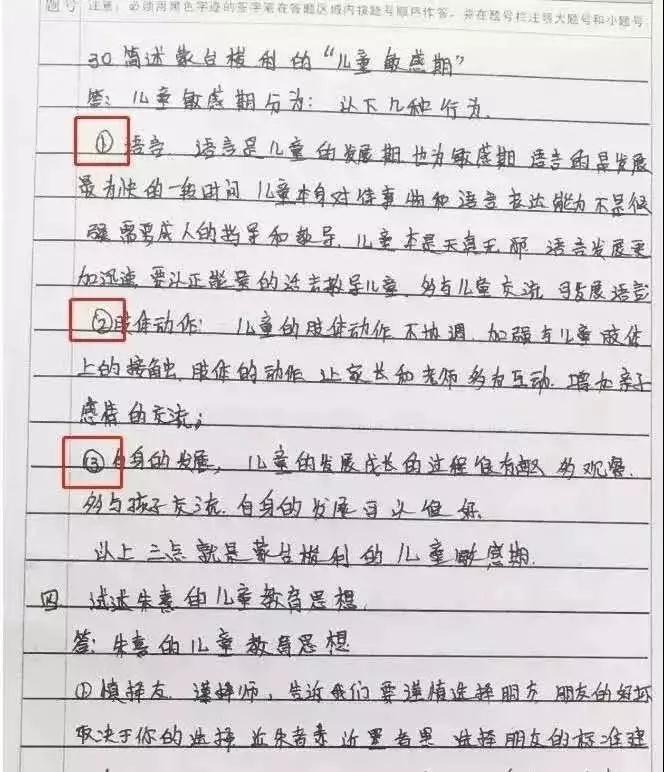 题号 注意：必须用黑色字迹的签字笔在答题区域内按题号顺序作答，并在题号栏注明大题号和小题号
30 简述蒙台梭利的“儿童敏感期”
答：儿童敏感期分为：以下几种行为.
① 语言. 语言是儿童的发展期也为敏感期 语言的是发展
最为快的一段时间 儿童本身对待事物和语言表达能力不是很
强 需要成人的指导和教导. 儿童本是天真无邪 语言发展更
加迅速 要以正能量的语言教导儿童. 多与儿童交流 发展语言
②肢体动作： 儿童的肢体动作不协调. 加强与儿童肢体
上的接触. 肢体的动作 让家长和老师多为互动. 增加亲子
感情的交流；
③自身的发展， 儿童的发展成长的过程很有 多观察.
多与孩子交流. 自身的发展可以很好.
以上三点就是蒙台梭利的儿童敏感期.
四 试述朱熹的儿童教育思想.
答：朱熹的儿童教育思想
①慎择友. 谨择师，告诉我们要谨慎选择朋友 朋友的好坏
取决于你的选择 近朱者赤近墨者黑 选择朋友的标准建